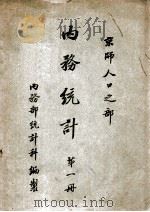 京師人口之部
內務統計 第一冊
內務部統計科編製